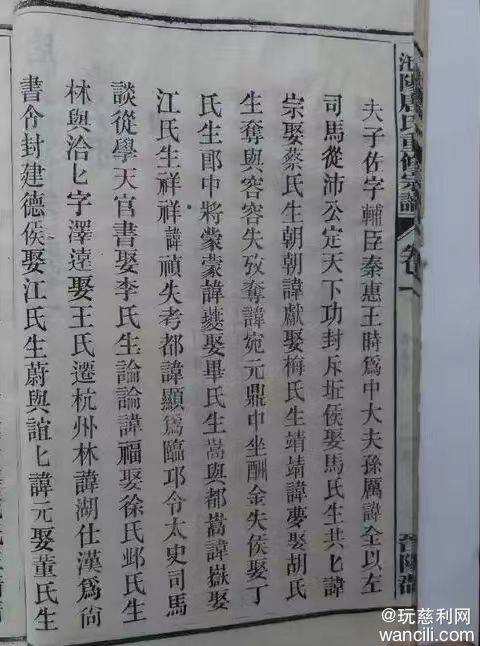 氏重修宗譜
卷一
晉陽郡
夫子佐字輔臣秦惠王時爲中大夫孫厲諱全以左
司馬從沛公定天下功封斥坵侯娶馬氏生共匕諱
宗娶蔡氏生朝朝諱獻娶梅氏生靖靖諱夢娶胡氏
生奪與容容失攷奪諱宛元鼎中坐酬金失侯娶丁
氏生郎中將蒙蒙諱夔娶畢氏生嵩與都嵩諱嶽娶
江氏生祥祥諱禎失考都諱顯爲臨邛令太史司馬
談從學天官書娶李氏生論論諱福娶徐氏氏生
林與洽匕字澤遠娶王氏遷杭州林諱湖仕漢爲尙
書令封建德侯娶江氏生蔚與誼匕諱元娶董氏生
@玩慈利网
wancili.com